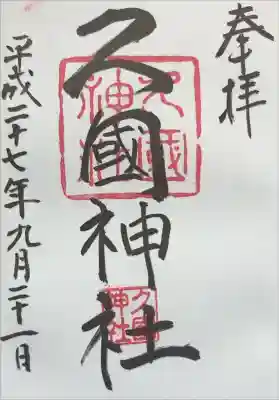 奉拝
久國神社
平成二十七年九月二十一日
久國神社
久國神社